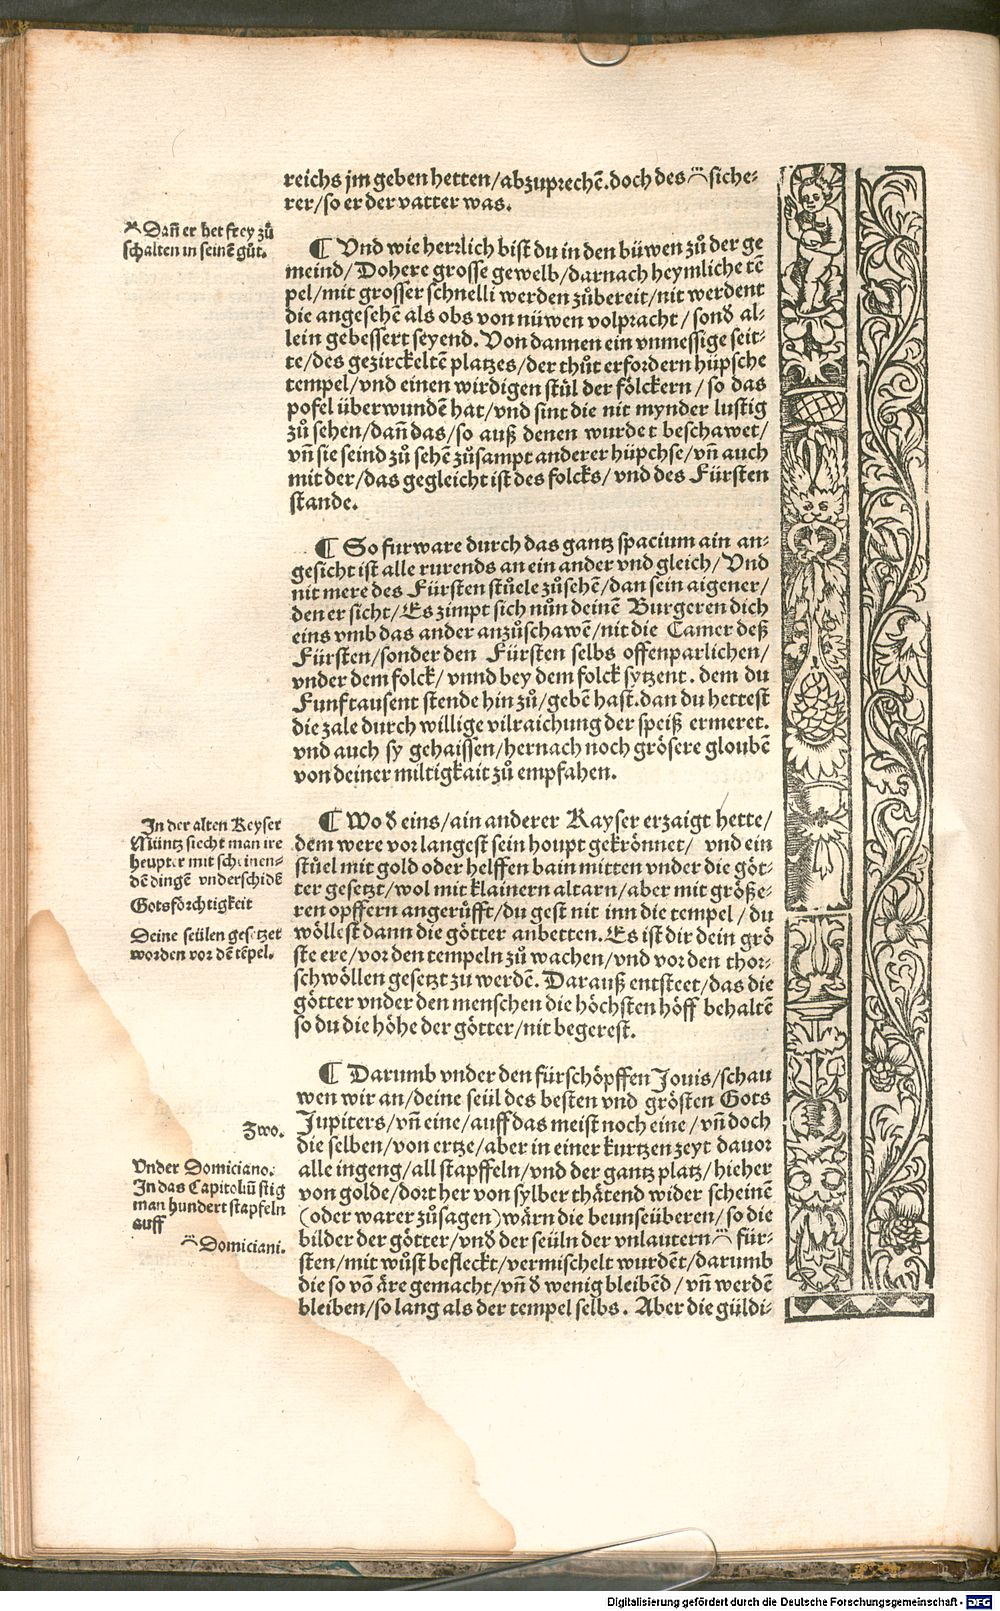 reichs jm geben hetten/abzuprechē.doch des siche-
rer/so er der vatter was.
Dañ er het frey zů
schalten in seinē gůt.
¶ Vnd wie herrlich bist du in den büwen zů der ge
meind/Dohere grosse gewelb/darnach heymliche tē
pel/mit grosser schnelli werden zůbereit/nit werdent
die angesehē als obs von nüwen volpracht/sonð al-
lein gebessert seyend. Von dannen ein vnmessige seit-
te/des gezirckeltē platzes/der thůt erfordern hüpsche
tempel/vnd einen wirdigen stůl der fölckern/so das
pofel überwundē hat/vnd sint die nit mynder lustig
zů sehen/dañ das/so auß denen wurdet beschawet/
vñ sie seind zů sehē zůsampt anderer hüpchse/vñ auch
mit der/das gegleicht ist des folcks/vnd des Fürsten
stande.
¶ So furware durch das gantz spacium ain an-
gesicht ist alle rurends an ein ander vnd gleich/Vnd
nit mere des Fürsten stůele zůsehē/dan sein aigener/
den er sicht/Es zimpt sich nůn deinē Burgeren dich
eins vmb das ander anzůschawē/nit die Camer deß
Fürsten/sonder den Fürsten selbs offenparlichen/
vnder dem folck/vnnd bey dem folck sytzent. dem du
Funftausent stende hin zů/gebē hast.dan du hettest
die zale durch willige vilraichung der speiß ermeret.
vnd auch sy gehaissen/hernach noch grösere gloubē
von deiner miltigkait zů empfahen.
In der alten Keyser
Müntz siecht man ire
heupter mit scheinen-
dē dingē vnderschidē
Gotsförchtigkeit
Deine seülen gesetzet
worden vor dē tēpel.
¶ Wo ð eins/ain anderer Kayser erzaigt hette/
dem were vor langest sein houpt gekrönnet/ vnd ein
stůel mit gold oder helffen bain mitten vnder die göt-
ter gesetzt/wol mit klainern altarn/aber mit größe-
ren opffern angerůfft/du gest nit inn die tempel/du
wöllest dann die götter anbetten.Es ist dir dein grö
ste ere/vor den tempeln zů wachen/vnd vor den thor-
schwöllen gesetzt zu werdē. Darauß entsteet/das die
götter vnder den menschen die höchsten höff behaltē
so du die höhe der götter/nit begerest.
¶ Darumb vnder den fürschöpffen Jouis/schau
wen wir an/deine seül des besten vnd grösten Gots
Jupiters/vñ eine/auff das meist noch eine/vñ doch
die selben/von ertze/aber in einer kurtzen zeyt dauor
alle ingeng/all stapffeln/vnd der gantz platz/hieher
von golde/dort her von sylber thätend wider scheinē
(oder warer zůsagen)wärn die beunseüberen/so die
bilder der götter/vnð der seüln der vnlautern für-
sten/mit wůst befleckt/vermischelt wurdēt/darumb
die so vō äre gemacht/vñ ð wenig bleibēd/vñ werdē
bleiben/so lang als der tempel selbs. Aber die güldi-
Zwo.
Vnder Domiciano.
In das Capitoliū stig
man hundert stapfeln
auff
Domiciani.
Digitalisierung gefördert durch die Deutsche Forschungsgemeinschaft - DFG